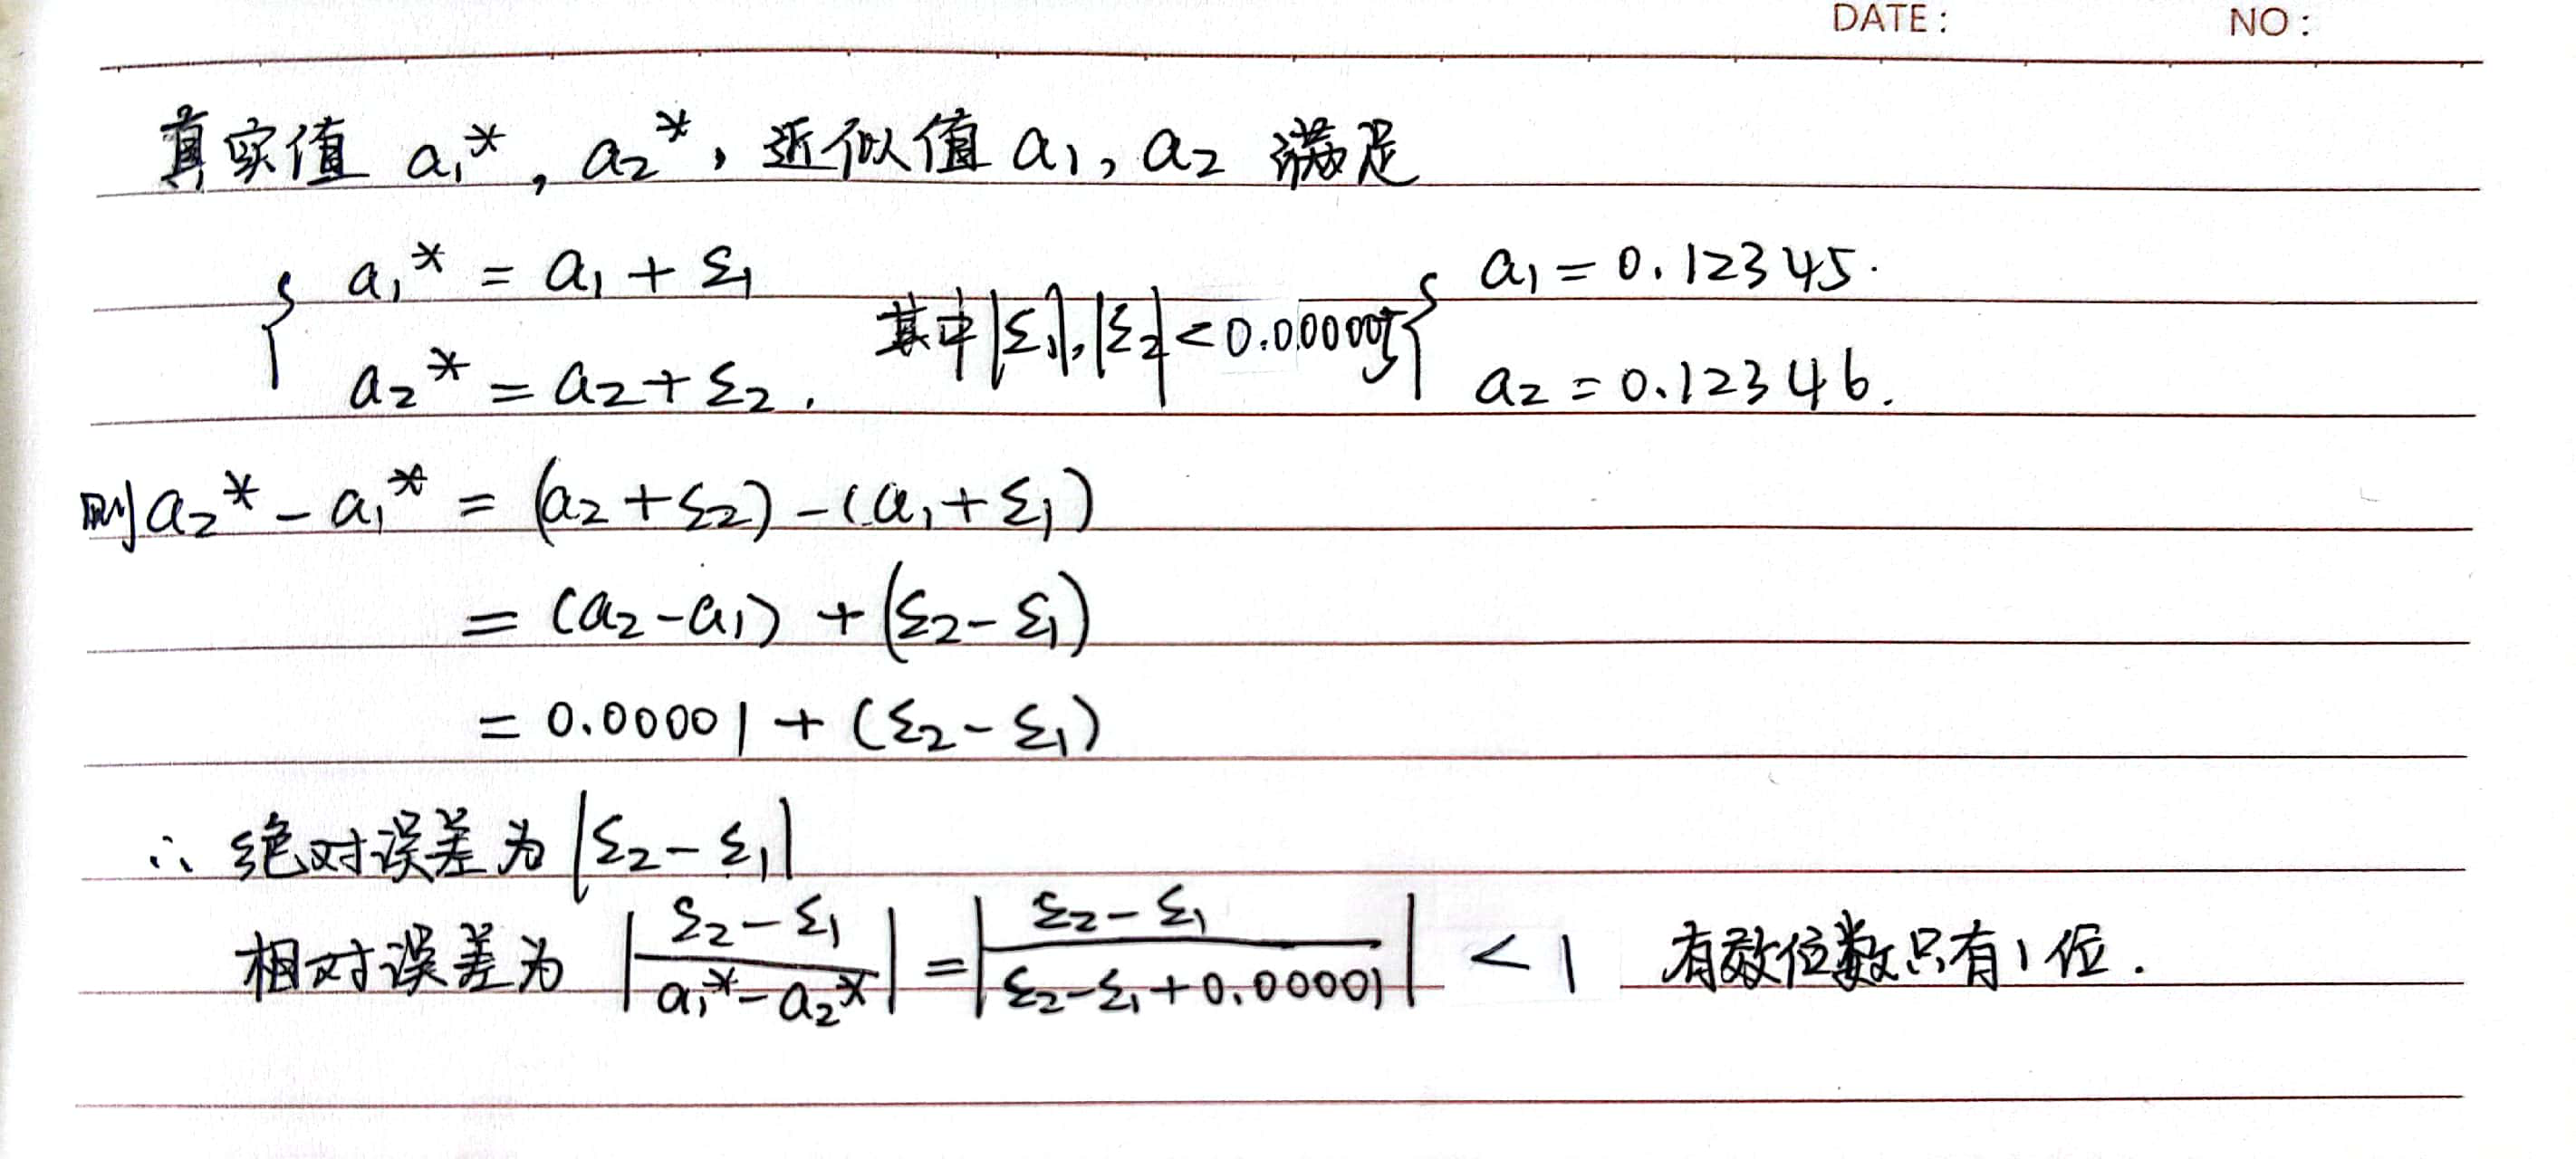 DATE: NO:
真实值 a₁*, a₂*, 近似值 a₁, a₂ 满足
{ a₁* = a₁ + ε₁
a₂* = a₂ + ε₂. 其中 |ε₁|, |ε₂| < 0.000005 { a₁ = 0.12345.
a₂ = 0.12346.
则 a₂* - a₁* = (a₂ + ε₂) - (a₁ + ε₁)
= (a₂ - a₁) + (ε₂ - ε₁)
= 0.00001 + (ε₂ - ε₁)
∴ 绝对误差为 |ε₂ - ε₁|
相对误差为 |(ε₂ - ε₁)/(a₁* - a₂*)| = |(ε₂ - ε₁)/(ε₂ - ε₁ + 0.00001)| < 1 有效位数只有1位.